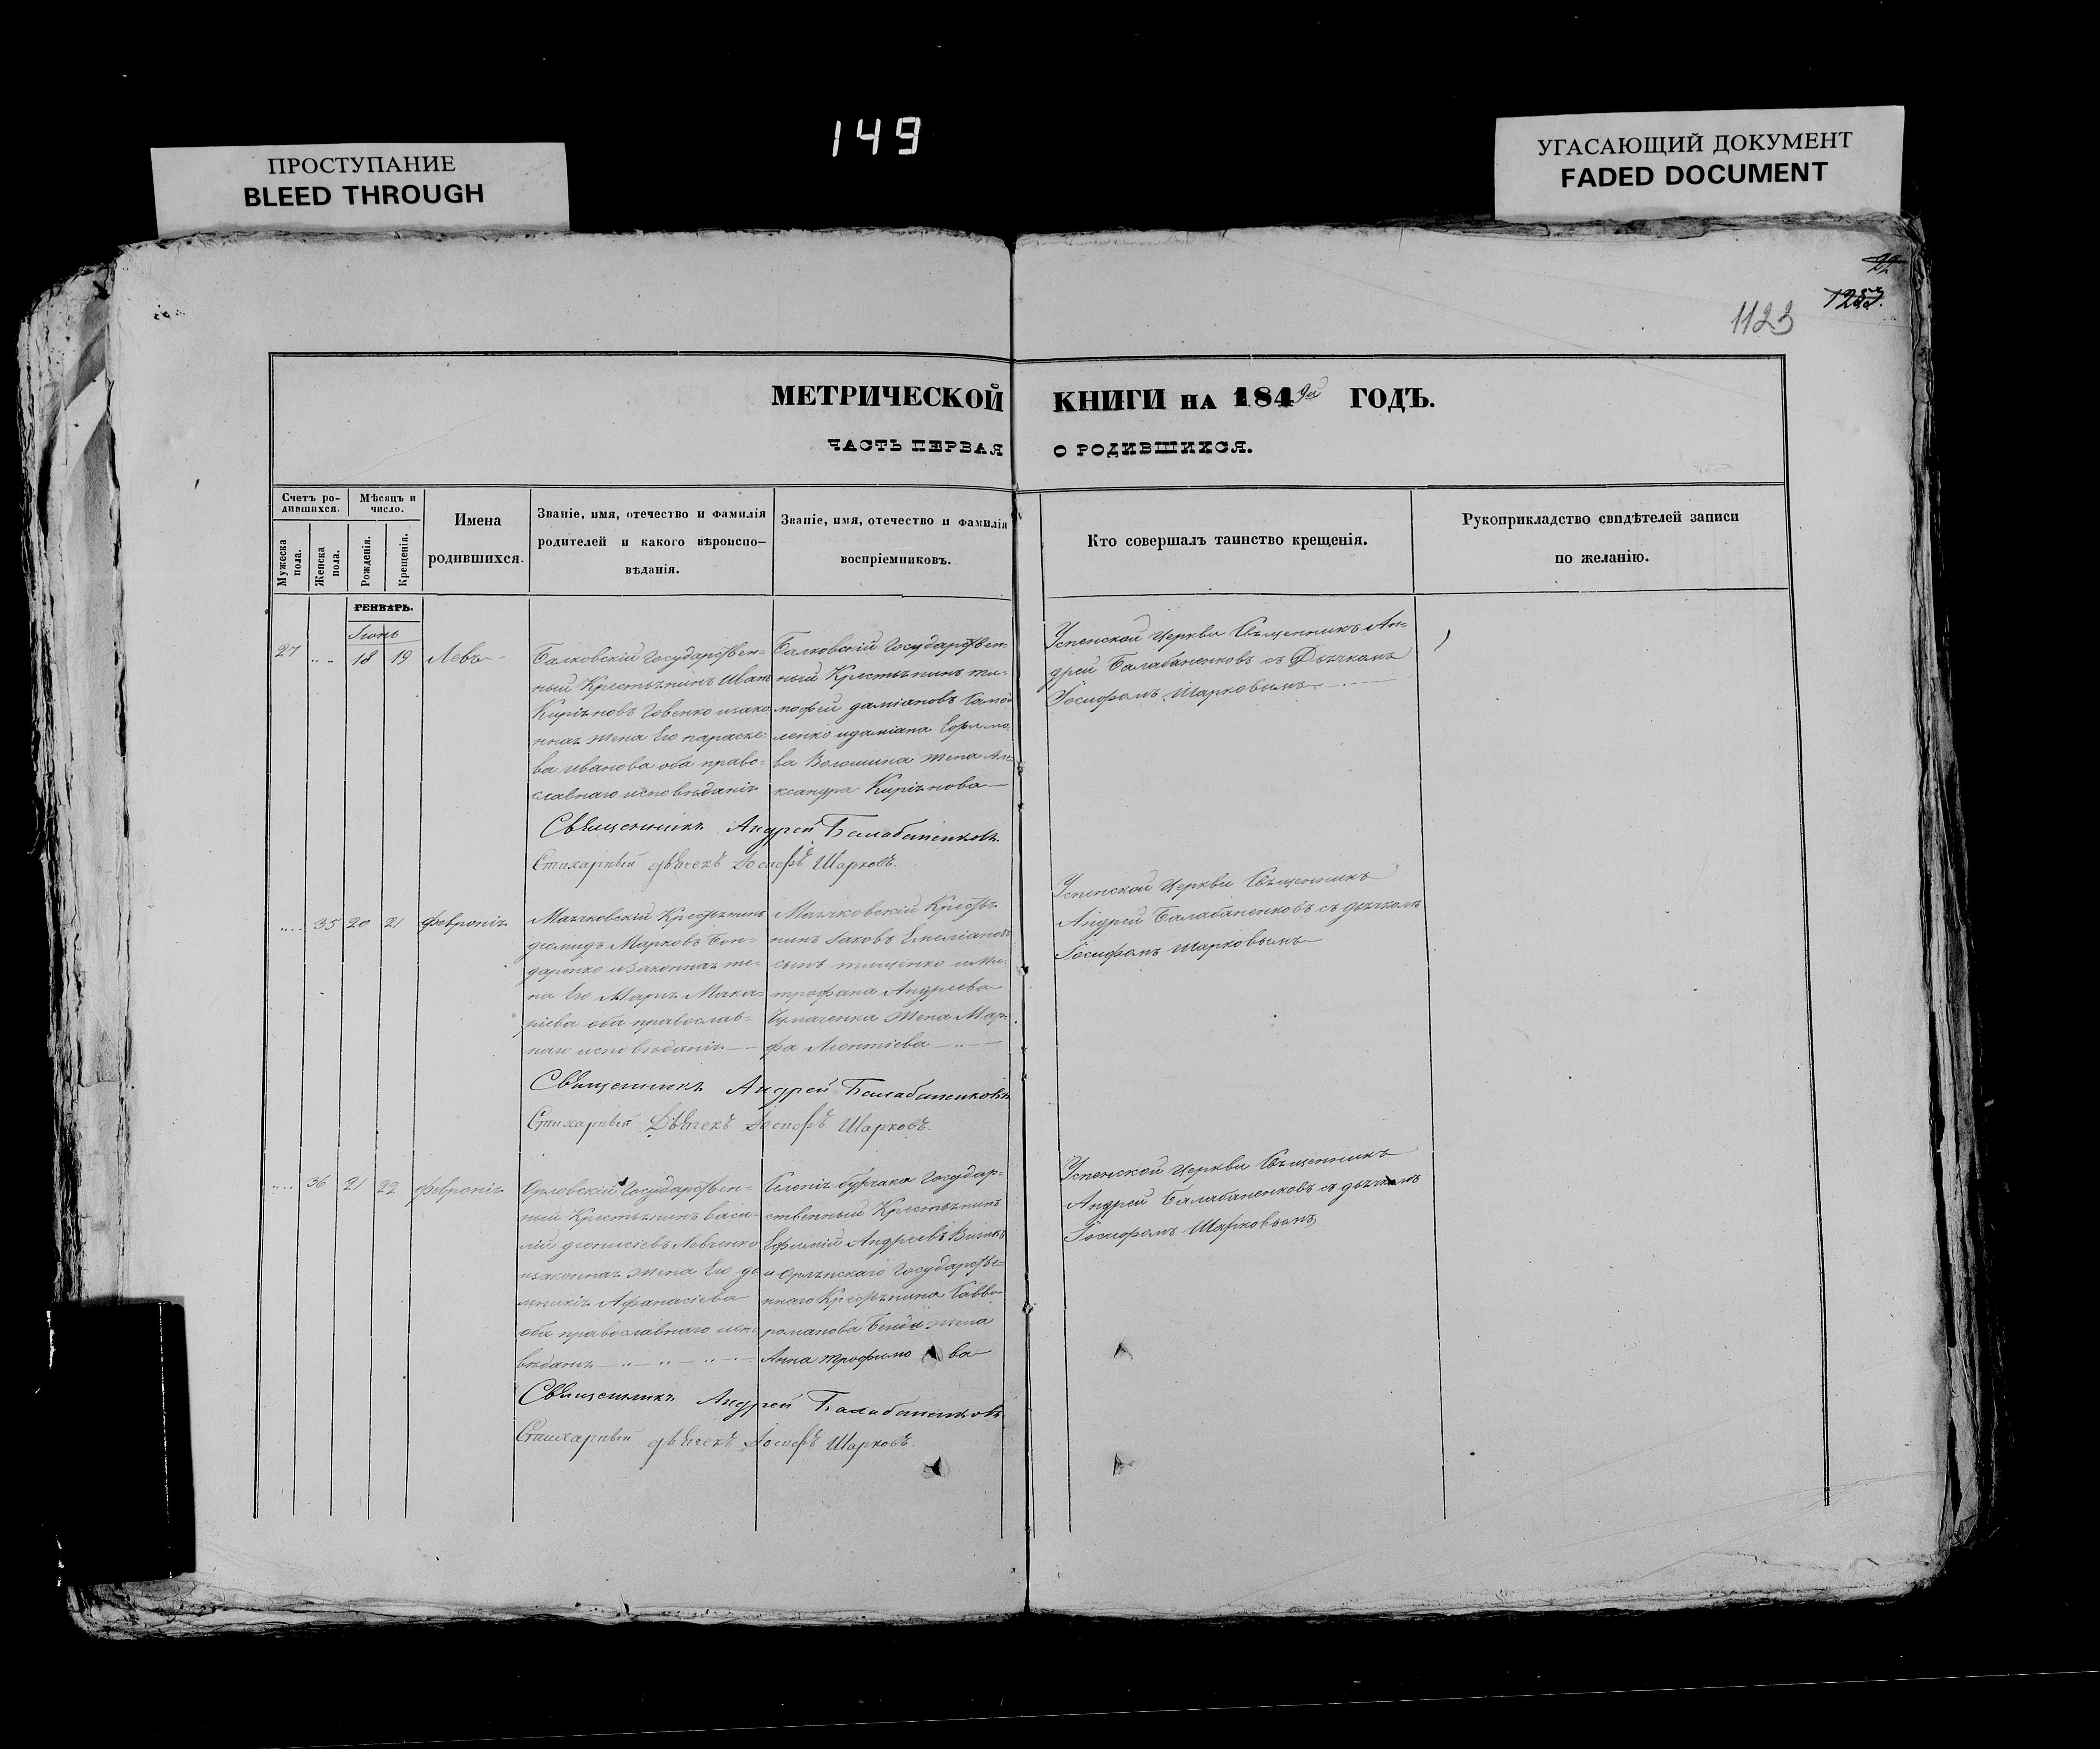 149
ПРОСТУПАНИЕ
BLEED THROUGH
УГАСАЮЩИЙ ДОКУМЕНТ
FADED DOCUMENT
22
1253.
1123
МЕТРИЧЕСКОЙ КНИГИ НА 1849й ГОДЪ.
ЧАСТЬ ПЕРВАЯ О РОДИВШИХСЯ.
Счетъ ро-
дившихся.
Мужеска
пола.
Женска
пола.
Мѣсяцъ и
число.
Рожденія.
Крещенія.
Имена
родившихся.
Званіе, имя, отечество и фамилія
родителей и какого вѣроиспо-
вѣданія.
Званіе, имя, отечество и фамилія
воспріемниковъ.
Кто совершалъ таинство крещенія.
Рукоприкладство свидѣтелей записи
по желанію.
ГЕНВАРЬ.
27 18 19
Балковскій Государствен-
ный Крестьянинъ Иванъ
Киріяновъ изако
нная жена Его параске-
ва иванова оба право-
славнаго исповѣданія
Балковскій Государствен
ный Крестьянинъ ти-
мофей даміановъ Самой
ленко идаміана
ва Волошина жена Але
ксандра Киріянова
Успенской Церкви Священникъ Ан-
дрей Балабаненковъ съ Дьячкомъ
Іосифомъ Шарковымъ
Священникъ Андрей Балабаненковъ.
Стихарный дьячекъ Іосифъ Шарковъ.
35 20 21 Февронія
Маячковскій Крестьянинъ
демидъ Марковъ Бон-
даренко изаконная же-
на Его Марія Мака-
ріева оба православ-
наго исповѣданія
Маячковскій Крестья
нинъ Іаковъ Емеліановъ
сынъ тищенко иМи-
трофана Андреева
жена Мар
фа Леонтіева
Успенской Церкви Священникъ
Андрей Балабаненковъ съ дьячкомъ
Іосифомъ Шарковымъ
Священникъ Андрей Балабаненковъ
Стихарный Дьячекъ Іосифъ Шарковъ.
36 21 22 Февронія
Орловскій Государствен-
ный Крестьянинъ Васи-
лій діонисіевъ Левченко
изаконная жена Его до
мникія Афанасіева
оба православнаго испо
вѣданія
Селенія бурчака Государ-
ственный Крестьянинъ
Ефимій Андреевъ
и Орлянскаго Государстве-
ннаго Крестьянина Савви
романова жена
Анна трофимова
Успенской Церкви Священникъ
Андрей Балабаненковъ съ дьячкомъ
Іосифомъ Шарковымъ
Священникъ Андрей Балабаненковъ
Стихарный дьячекъ Іосифъ Шарковъ.